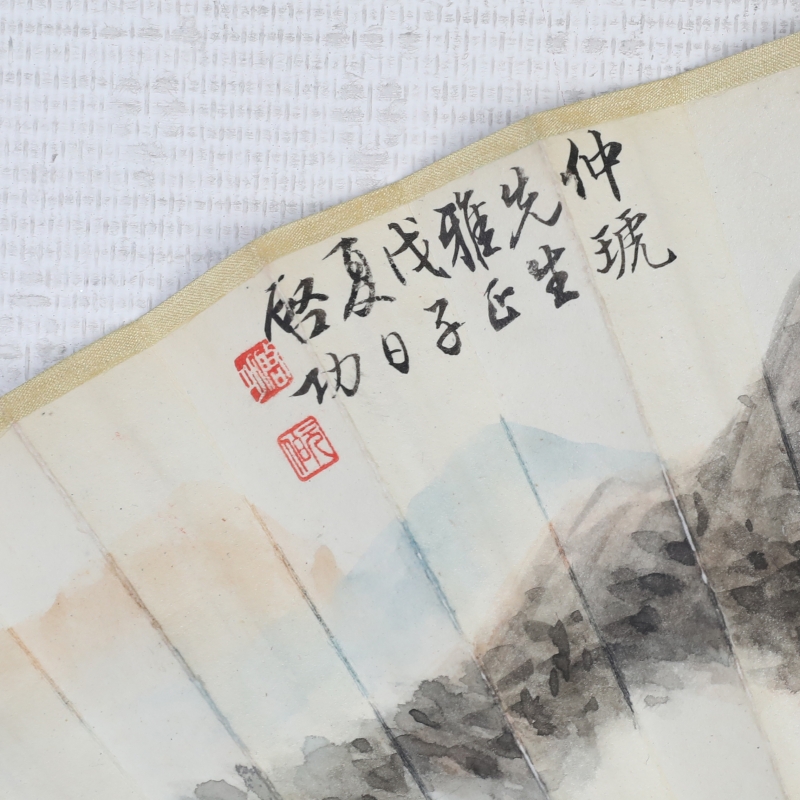 仲琥
先生
雅正
戊子
夏日
启功